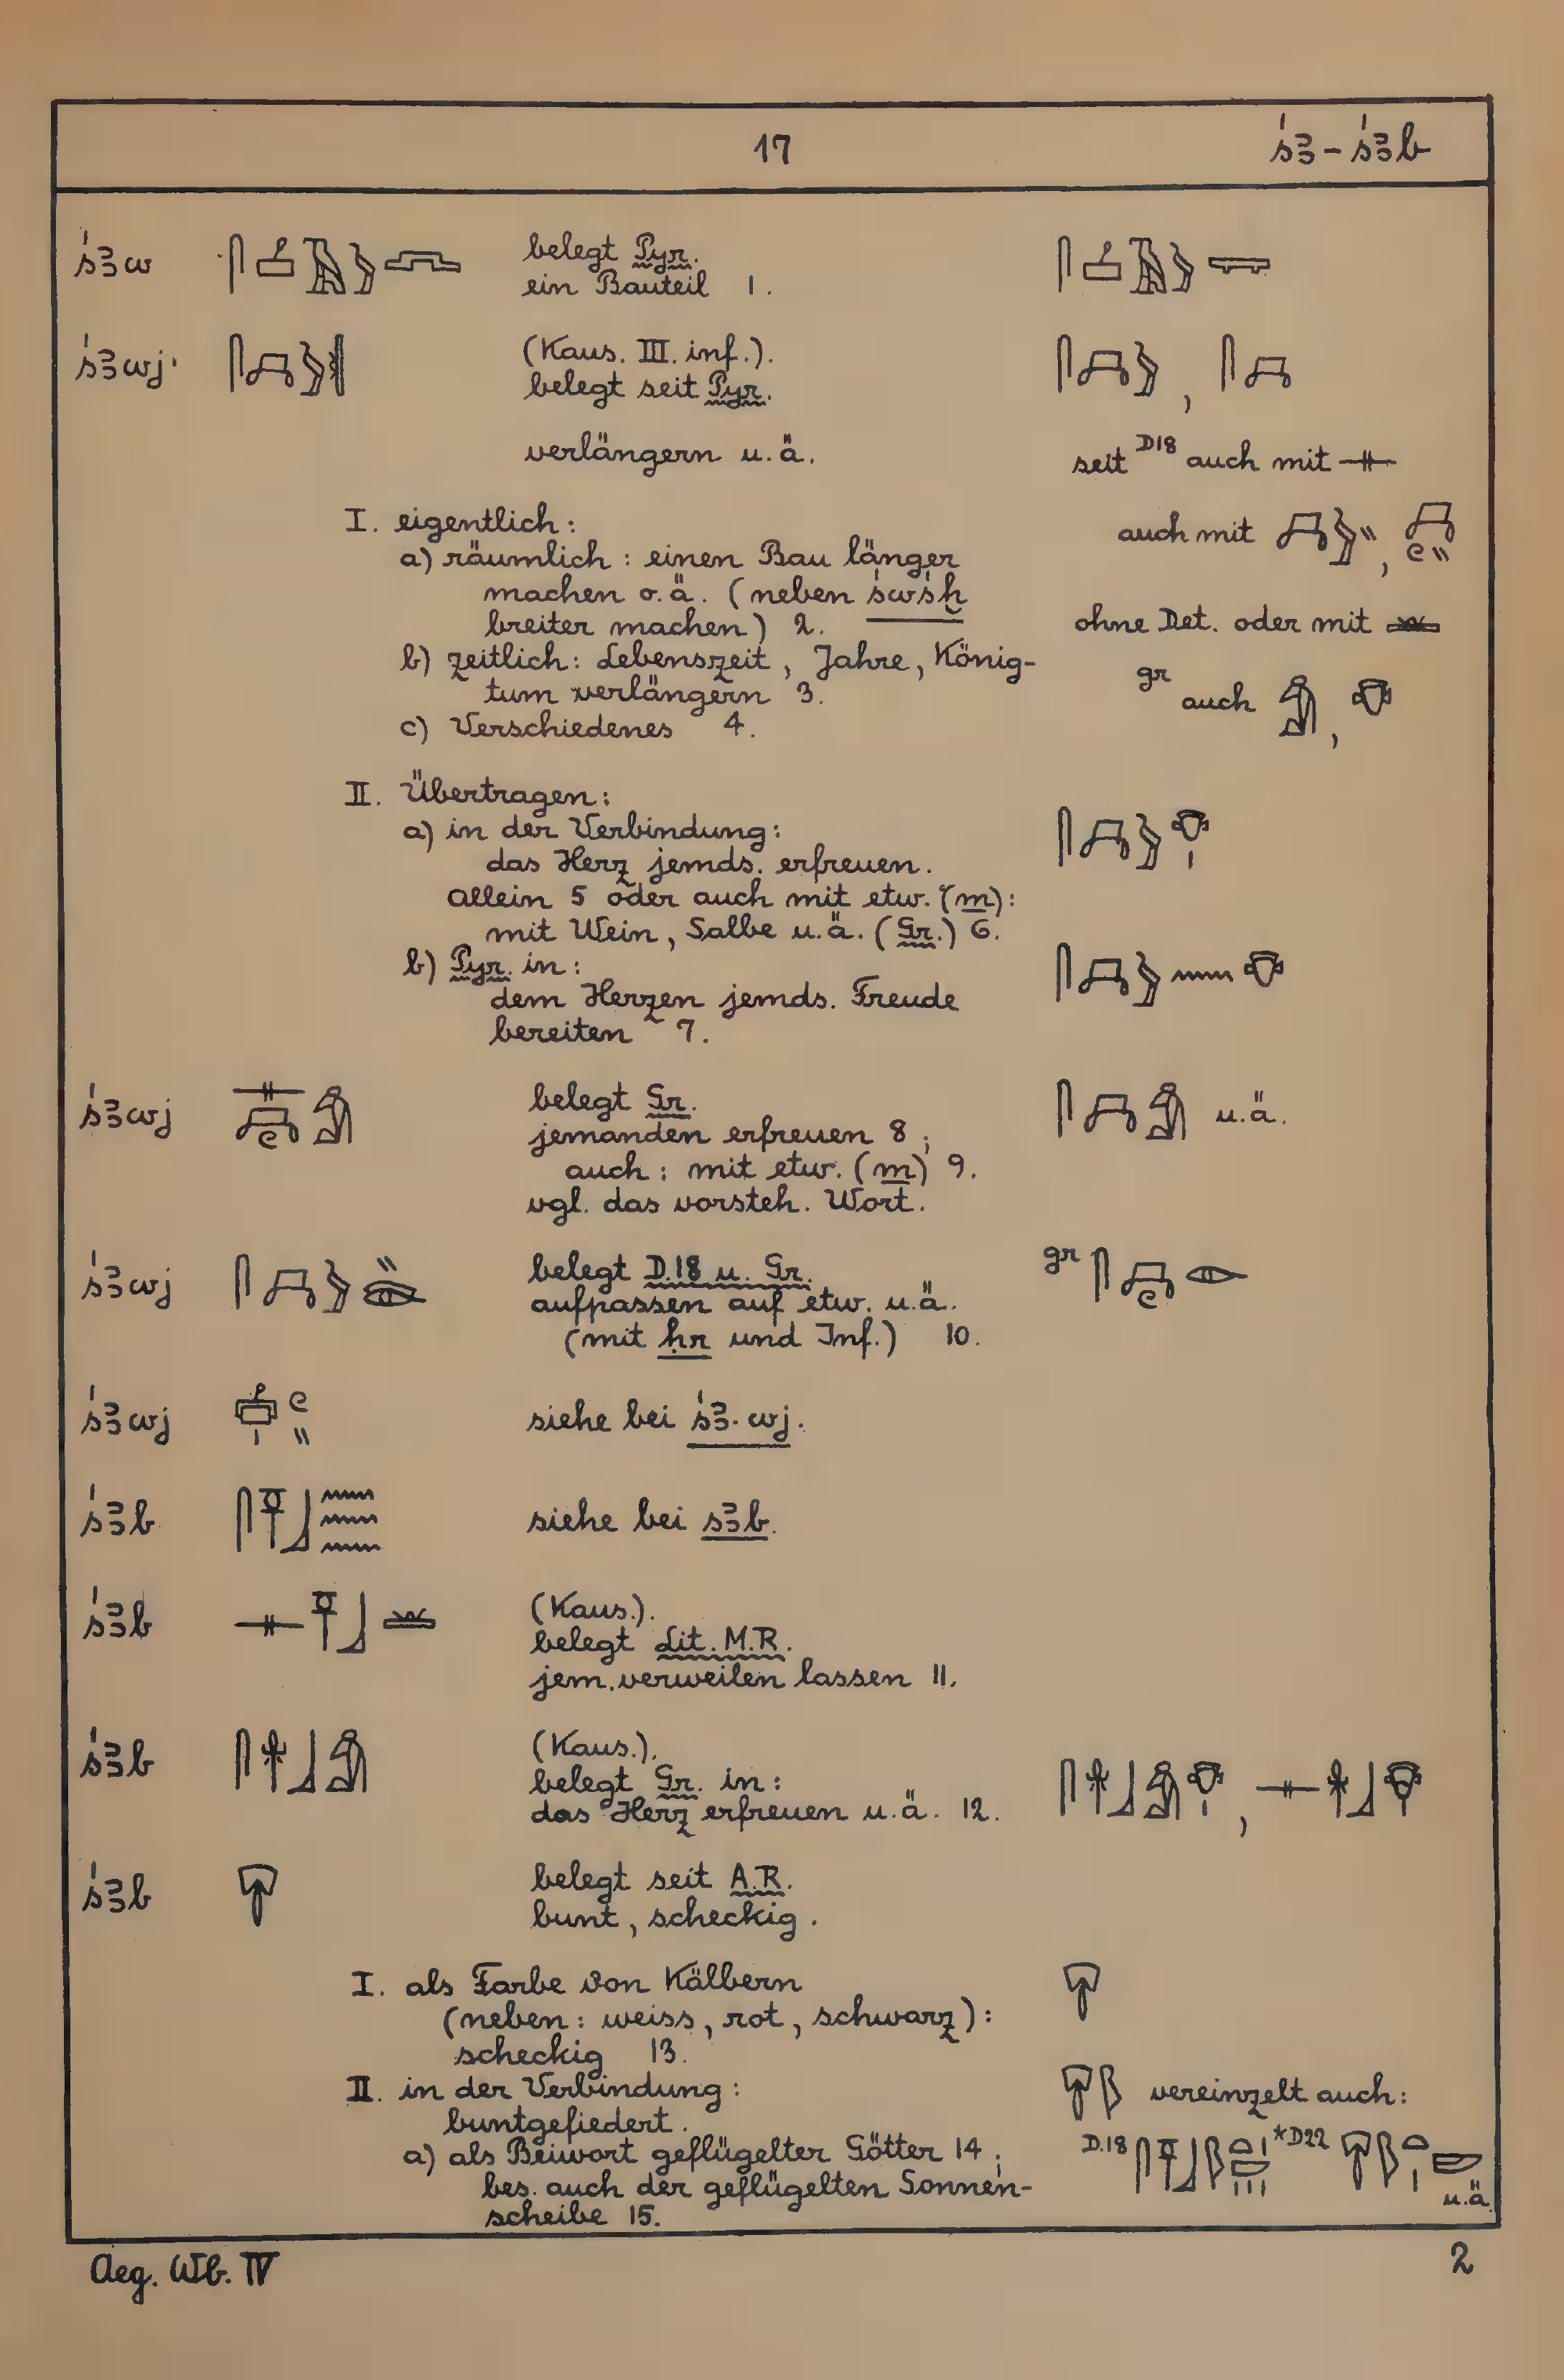 17
ś3 - ś3b
ś3w
belegt Pyr.
ein Bauteil 1.
ś3wj
(Kaus. III. inf.).
belegt seit Pyr.
verlängern u. ä.
seit D18 auch mit
I. eigentlich:
auch mit
a) räumlich: einen Bau länger
machen o. ä. (neben śwśḫ
breiter machen) 2.
ohne Det. oder mit
b) zeitlich: Lebenszeit, Jahre, König-
tum verlängern 3.
gr auch
c) Verschiedenes 4.
II. Übertragen:
a) in der Verbindung:
das Herz jemds. erfreuen.
allein 5 oder auch mit etw. (m):
mit Wein, Salbe u. ä. (Gr.) 6.
b) Pyr. in:
dem Herzen jemds. Freude
bereiten 7.
ś3wj
belegt Gr.
u. ä.
jemanden erfreuen 8;
auch: mit etw. (m) 9.
vgl. das vorsteh. Wort.
ś3wj
belegt D.18 u. Gr.
gr
aufpassen auf etw. u. ä.
(mit ḥr und Inf.) 10.
ś3wj
siehe bei ś3.wj.
ś3b
siehe bei s3b.
ś3b
(Kaus.).
belegt Lit. M.R.
jem. verweilen lassen 11.
ś3b
(Kaus.).
belegt Gr. in:
das Herz erfreuen u. ä. 12.
ś3b
belegt seit A.R.
bunt, scheckig.
I. als Farbe von Kälbern
(neben: weiss, rot, schwarz):
scheckig 13.
II. in der Verbindung:
vereinzelt auch:
buntgefiedert.
a) als Beiwort geflügelter Götter 14;
D.18
*D22
bes. auch der geflügelten Sonnen-
u. ä.
scheibe 15.
Aeg. Wb. IV
2